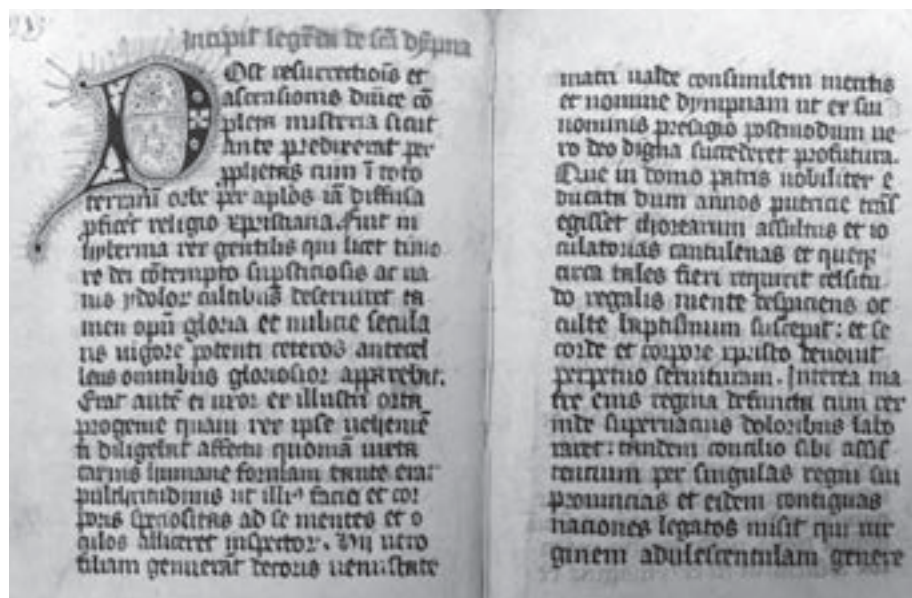 Incipit legēda de scā dympna
Post resurrectiōis et
ascensionis diuine cō
pleta misteria sicut
ante predixerat per
pphetas cum ī toto
terrarū orbe per aplos iā diffusa
religio xpristiana. Fuit in
hybernia rex gentilis qui licet timo
re dei cōtempto supsticiosis ac ua
nis ydolor cultibus deseruiret ta
men opū gloria et milicie secula
ris uigore potenti ceteros antecel
lens omnibus gloriosior apparebat.
Erat autē ei uxor ex illustri orta
progenie quam rex ipse uehemē
ti diligebat affectu quoniā iuxta
carnis humane formam tante erat
pulchritudinis ut illi⁹ facies et cor
poris speciositas ad se mentes et o
culos alliceret inspector. uero
filiam genuerat decoris uenustate
matri ualde consimilem mentis
et nomine dympnam ut ex sui
nominis presagio postmodum ue
ro deo digna succederet profutura.
Que in domo patris nobiliter e
ducata dum annos puericie trās
egisset chorearum assultus et io
culatorias cantulenas et queq
circa tales fieri requirit celsitu
do regalis mente despiciens oc
culte baptismum suscepit: et se
corde et corpore xpristo deuouit
perpetuo seruituram. Interea ma
tre eius regina defuncta cum rex
inde supernacuis doloribus labo
raret: tandem concilio sibi assis
tencium per singulas regni sui
prouincias et eidem contiguas
naciones legatos misit qui uir
ginem adulescentulam genere